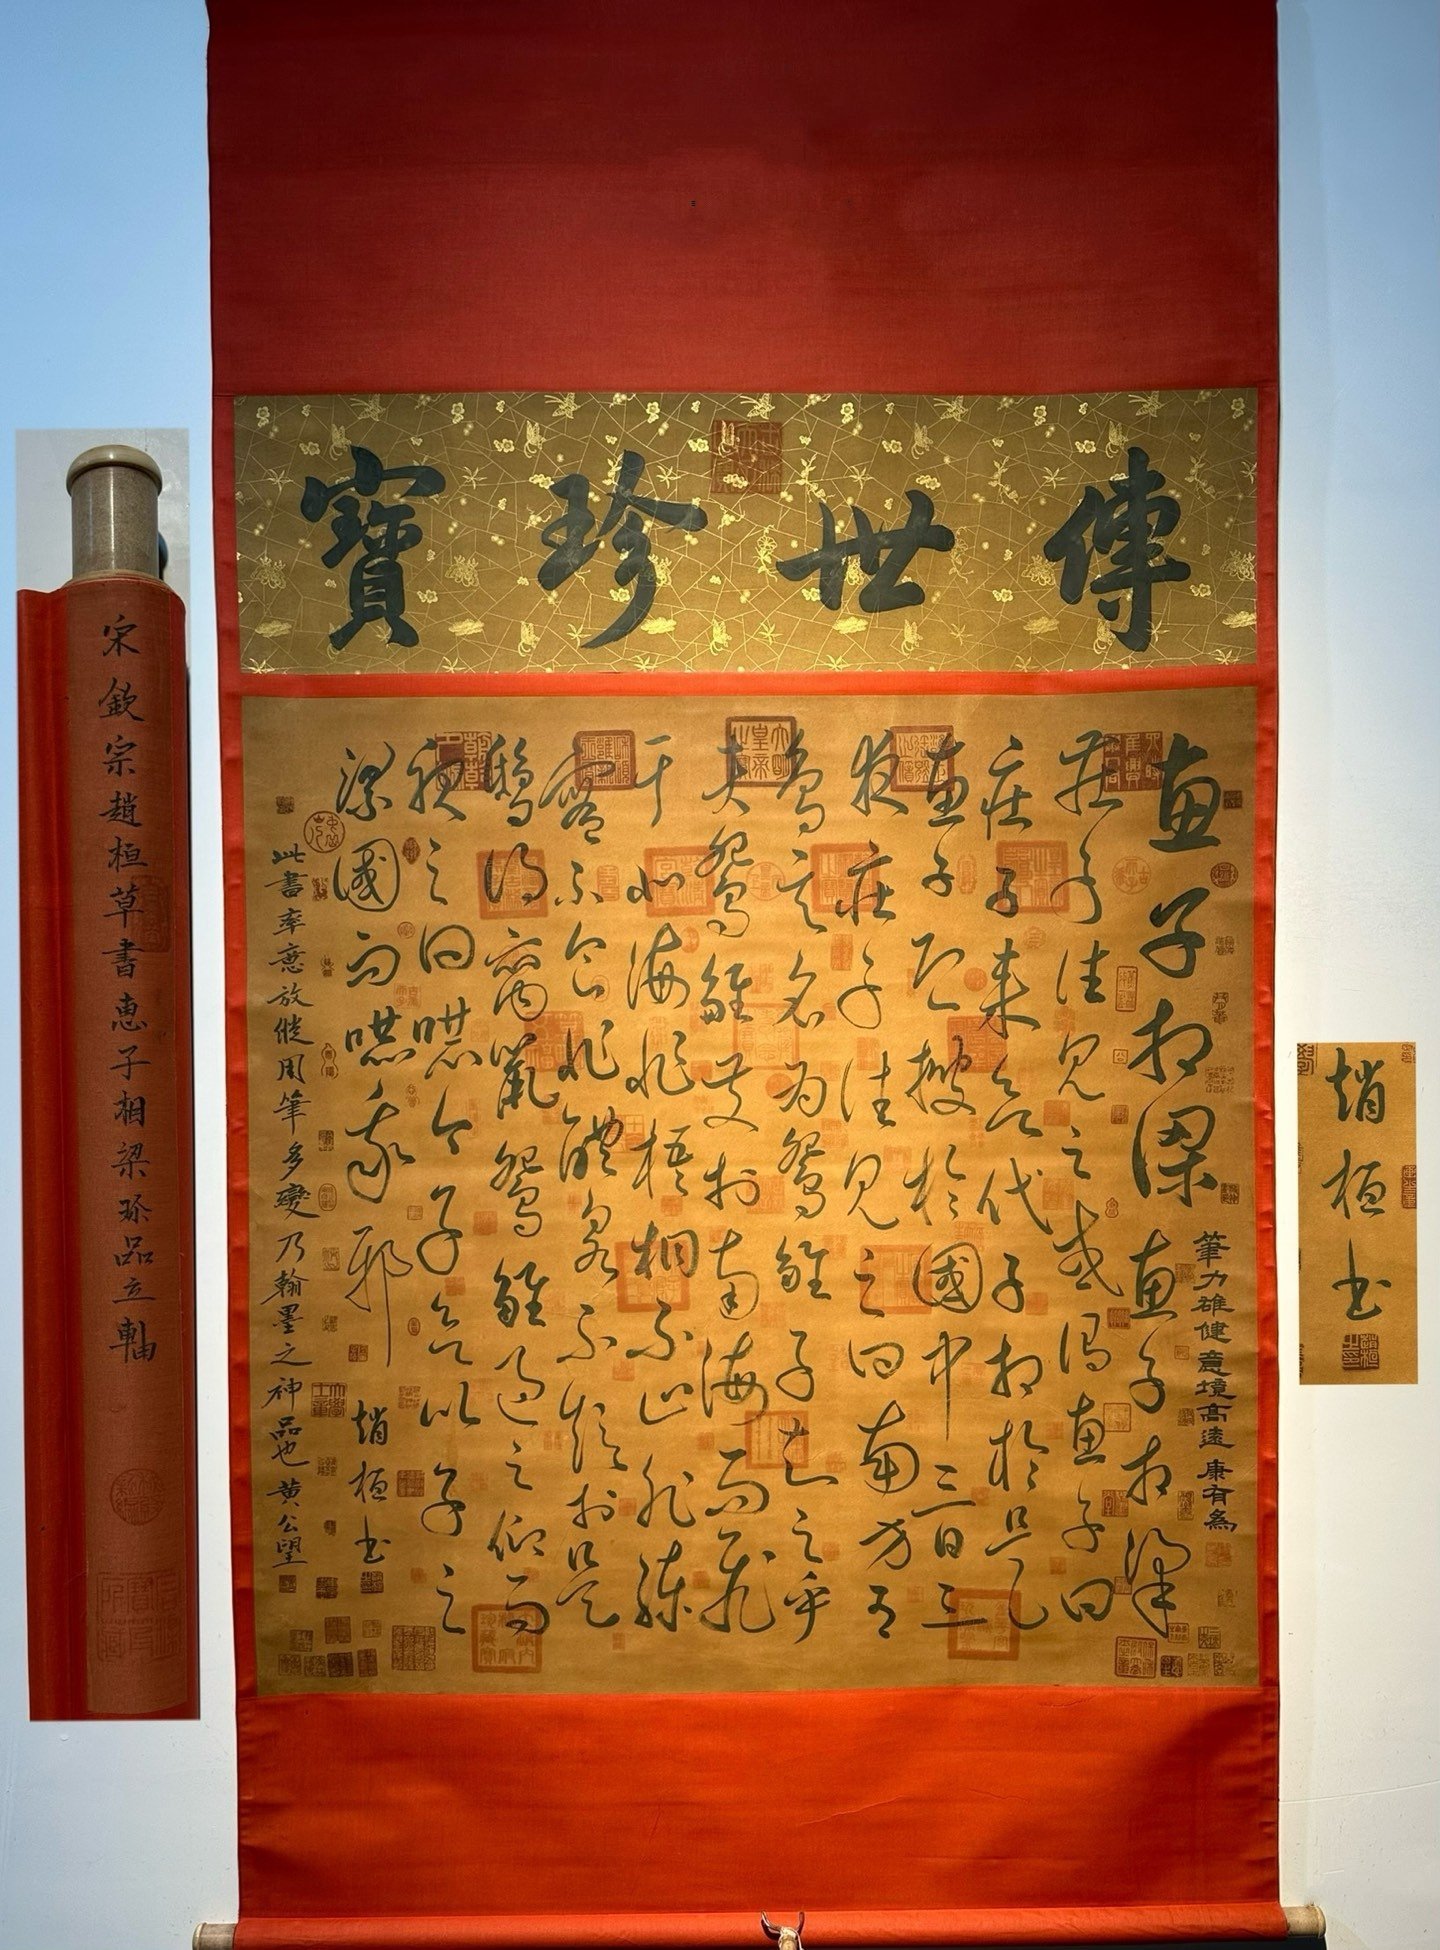 傳世珍寶
筆力雄健意境高遠康有為
惠子相梁惠子相梁
莊子往見之或謂惠子曰
莊子來欲代子相於是
惠子恐搜於國中三日三
夜莊子往見之曰南方有
鳥其名为鴛雛子知之乎
夫鴛雛發於南海而飛
于北海非梧桐不止非練
實不食非醴泉不飲於是
鵄得腐鼠鴛雛過之仰而
視之曰嚇今子欲以子之
梁國而嚇我邪
趙桓书
此書率意放縱用筆多變乃翰墨之神品也黄公望
宋欽宗趙桓草書惠子相梁珎品立軸
趙桓书